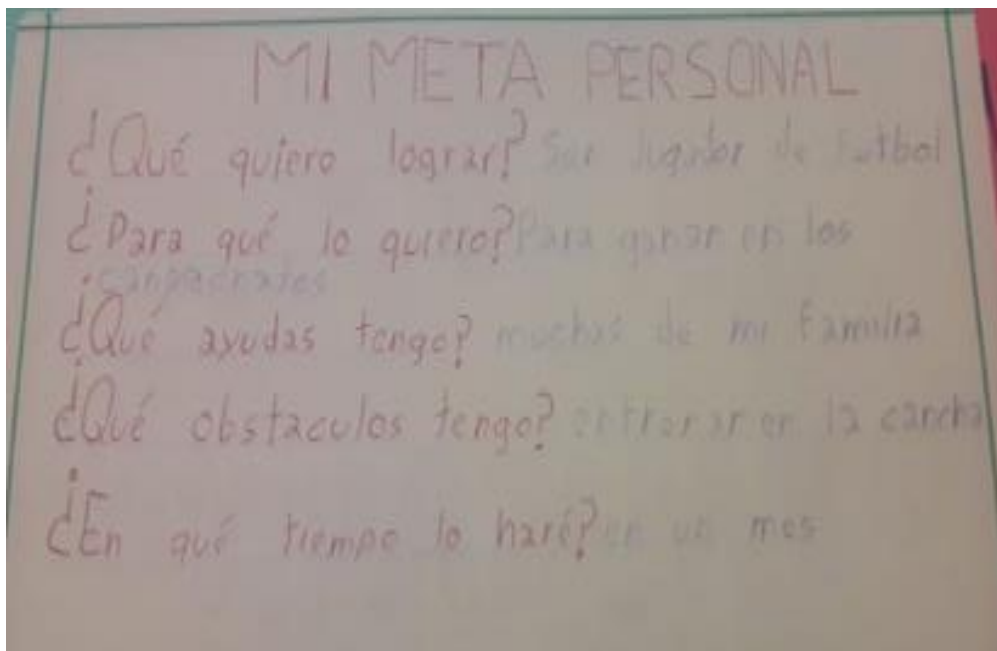 MI META PERSONAL
¿Qué quiero lograr? Ser Jugador de Futbol
¿Para qué lo quiero? Para ganar en los
¿Qué ayudas tengo? muchas de mi Familia
¿Qué obstaculos tengo? en la cancha
¿En qué tiempo lo haré? en un mes